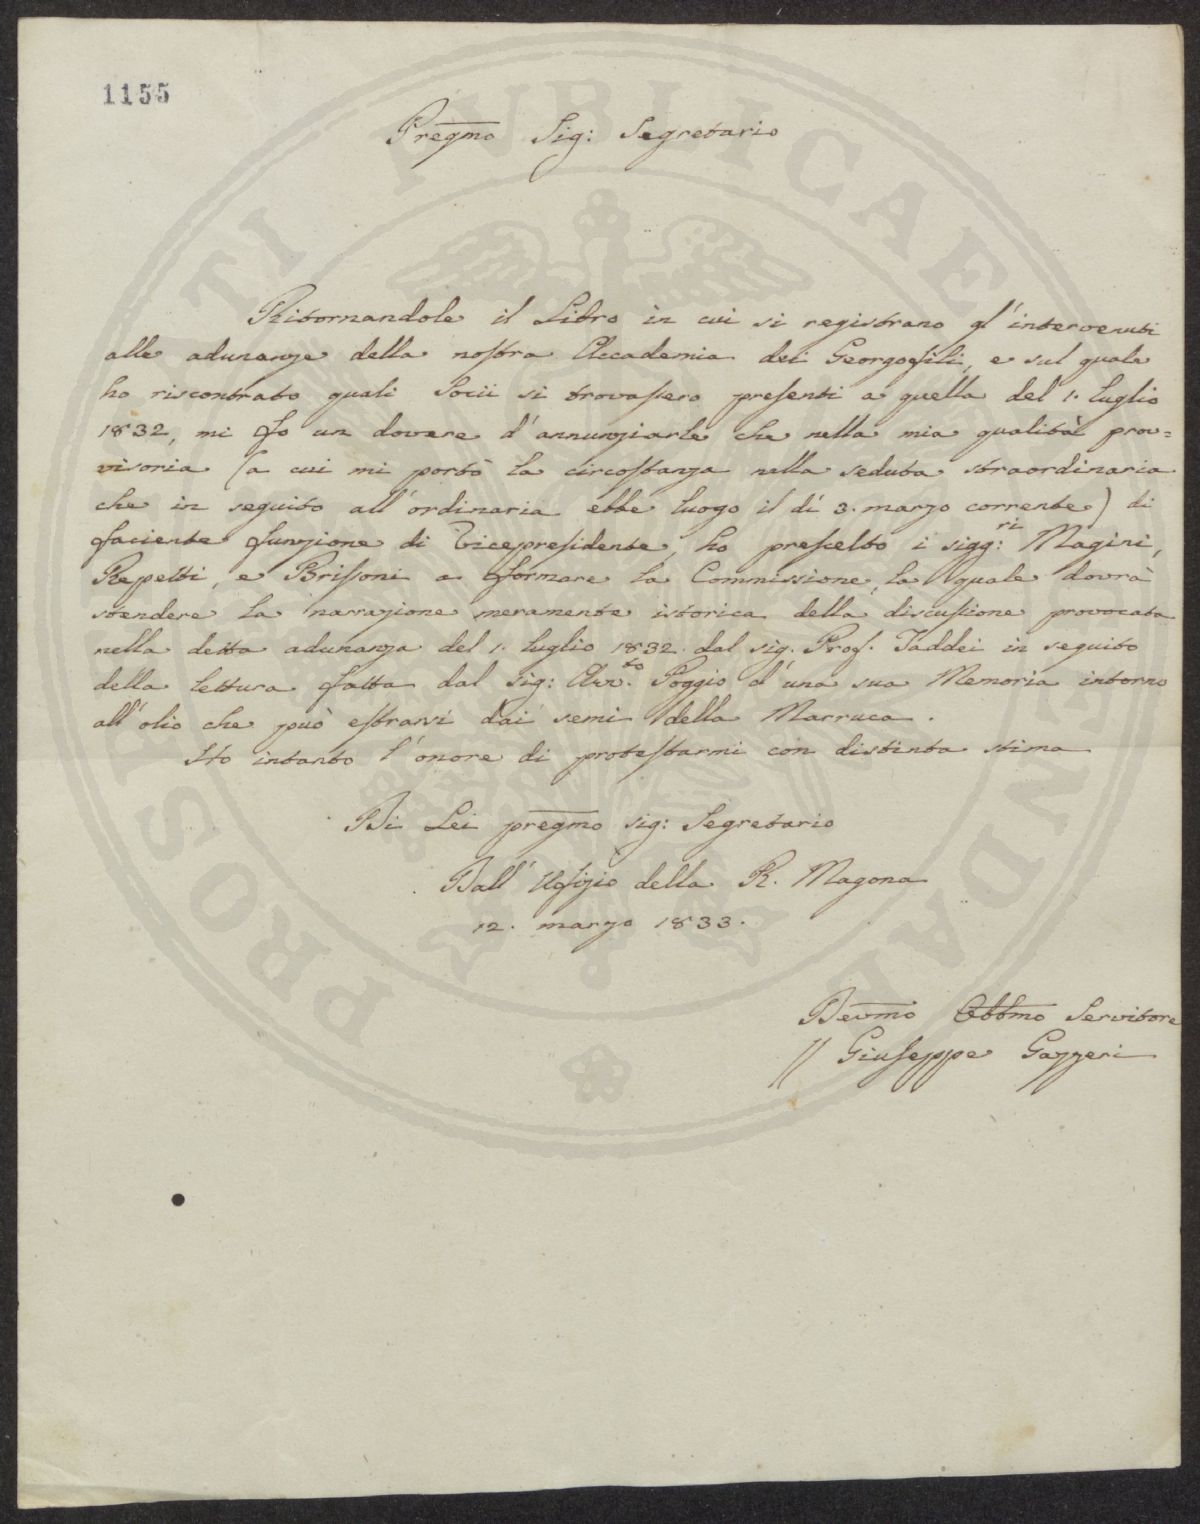 1155
Pregmo Sig: Segretario
Ritornandole il Libro in cui si registrano gl'intervenuti
alle adunanze della nostra Accademia dei Georgofili, e sul quale
ho riscontrato quali Socii si trovassero presenti a quella del 1. luglio
1832, mi fo un dovere d'annunziarle che nella mia qualità prov=
visoria (a cui mi portò la circostanza nella seduta straordinaria
che in seguito all'ordinaria ebbe luogo il dì 3. marzo corrente) di
faciente funzione di Vicepresidente, ho prescelto i sigg:ri Magini,
Repetti, e Brissoni a formare la Commissione, la quale dovrà
stendere la narrazione meramente istorica della discussione provocata
nella detta adunanza del 1. luglio 1832. dal sig. Prof. Taddei in seguito
della lettura fatta dal Sig: Avv.to Poggio d'una sua Memoria intorno
all'olio che può estrarsi dai semi della Marruca.
Ho intanto l'onore di protestarmi con distinta stima
Di Lei pregmo sig: Segretario
Dall'Ufizio della R. Magona
12. marzo 1833.
Devmo Obbmo Servitore
Giuseppe Gazzeri
PROSPERITATI PUBLICAE AUGENDAE